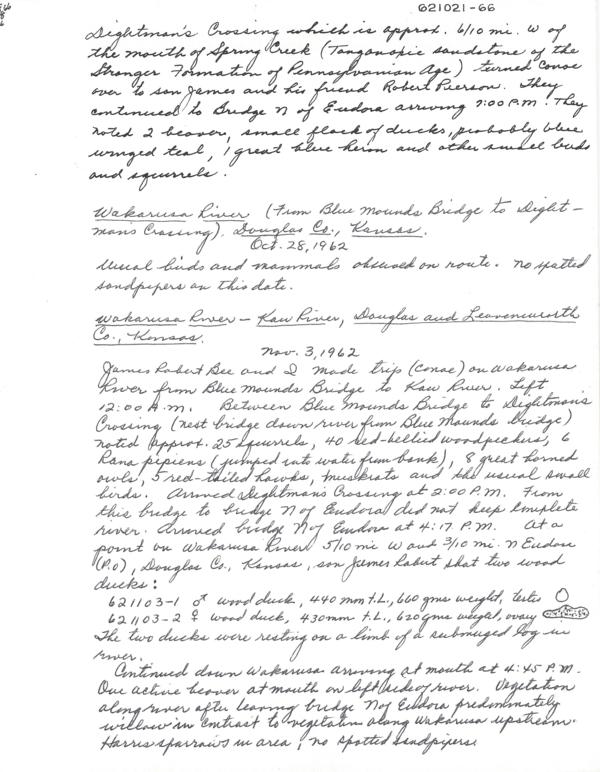 621021-66
Dightman's Crossing which is approx. 6/10 mi. W of
the mouth of Spring Creek (Tonganoxie sandstone of the
Stranger Formation of Pennsylvanian Age) turned canoe
over to son James and his friend Robert Pierson. They
continued to Bridge N of Eudora arriving 7:00 P.M. They
noted 2 beaver, small flock of ducks, probably blue
winged teal, 1 great blue heron and other small birds
and squirrels.
Wakarusa River (From Blue Mounds Bridge to Dight-
man's Crossing), Douglas Co., Kansas.
Oct. 28, 1962
Usual birds and mammals observed on route. No spotted
sandpipers on this date.
Wakarusa River - Kaw River, Douglas and Leavenworth
Co., Kansas.
Nov. 3, 1962
James Robert Bee and I made trip (canoe) on Wakarusa
River from Blue Mounds Bridge to Kaw River. Left
12:00 A.M. Between Blue Mounds Bridge to Dightman's
Crossing (next bridge down river from Blue Mounds bridge)
noted approx. 25 squirrels, 40 red-bellied woodpeckers, 6
Rana pipiens (jumped into water from bank), 8 great horned
owls, 5 red-tailed hawks, muskrats and the usual small
birds. Arrived Dightman's Crossing at 2:00 P.M. From
this bridge to bridge N of Eudora did not keep complete
river. Arrived bridge N of Eudora at 4:17 P.M. At a
point on Wakarusa River 5/10 mi W and 3/10 mi. N Eudora
(P.O), Douglas Co., Kansas, son James Robert shot two wood
ducks:
621103-1 ♂ wood duck, 440 mm t.L., 660 gms weight, testes
621103-2 ♀ wood duck, 430 mm t.L., 620 gms weight, ovary
The two ducks were resting on a limb of a submerged log in
river.
Continued down Wakarusa arriving at mouth at 4:45 P.M.
One active beaver at mouth on left side of river. Vegetation
along river after leaving bridge N of Eudora predominately
willow in contrast to vegetation along Wakarusa upstream.
Harris sparrows in area, no spotted sandpipers.